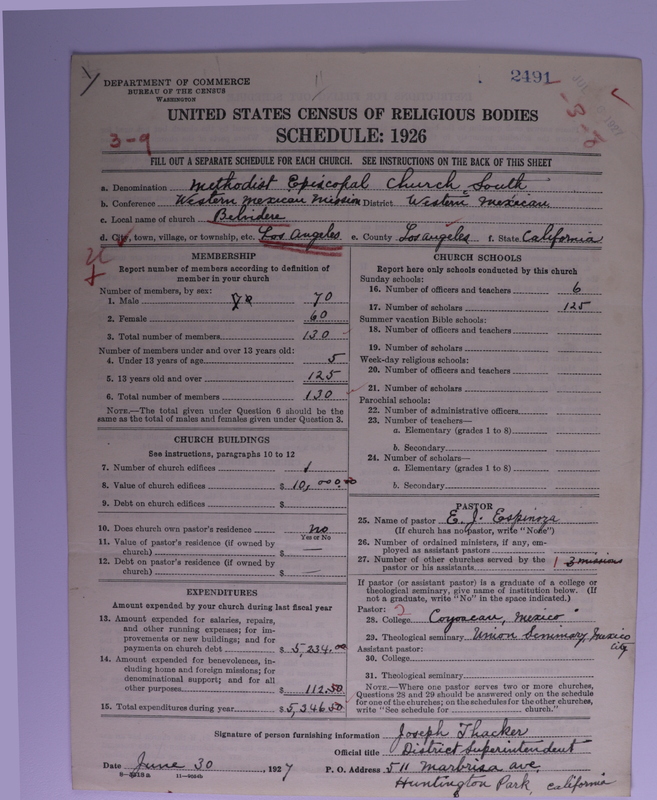 2491
DEPARTMENT OF COMMERCE
BUREAU OF THE CENSUS
WASHINGTON
UNITED STATES CENSUS OF RELIGIOUS BODIES
SCHEDULE: 1926
3-9
FILL OUT A SEPARATE SCHEDULE FOR EACH CHURCH. SEE INSTRUCTIONS ON THE BACK OF THIS SHEET
a. Denomination Methodist Episcopal Church, South
b. Conference Western Mexican Mission District Western Mexican
c. Local name of church Belvidere
d. City, town, village, or township, etc. Los Angeles e. County Los Angeles f. State California
MEMBERSHIP
Report number of members according to definition of
member in your church
Number of members, by sex:
1. Male 70
2. Female 60
3. Total number of members 130
Number of members under and over 13 years old:
4. Under 13 years of age 5
5. 13 years old and over 125
6. Total number of members 130
NOTE.—The total given under Question 6 should be the
same as the total of males and females given under Question 3.
CHURCH BUILDINGS
See instructions, paragraphs 10 to 12
7. Number of church edifices 1
8. Value of church edifices $ 10,000.00
9. Debt on church edifices $
10. Does church own pastor's residence no
Yes or No
11. Value of pastor's residence (if owned by
church) $ —
12. Debt on pastor's residence (if owned by
church) $ —
EXPENDITURES
Amount expended by your church during last fiscal year
13. Amount expended for salaries, repairs,
and other running expenses; for im-
provements or new buildings; and for
payments on church debt $ 5,234.00
14. Amount expended for benevolences, in-
cluding home and foreign missions; for
denominational support; and for all
other purposes 112.50
15. Total expenditures during year $ 5,346.50
CHURCH SCHOOLS
Report here only schools conducted by this church
Sunday schools:
16. Number of officers and teachers 6
17. Number of scholars 125
Summer vacation Bible schools:
18. Number of officers and teachers
19. Number of scholars
Week-day religious schools:
20. Number of officers and teachers
21. Number of scholars
Parochial schools:
22. Number of administrative officers
23. Number of teachers—
a. Elementary (grades 1 to 8)
b. Secondary
24. Number of scholars—
a. Elementary (grades 1 to 8)
b. Secondary
PASTOR
25. Name of pastor E. J. Espinoza
(If church has no pastor, write "None")
26. Number of ordained ministers, if any, em-
ployed as assistant pastors
27. Number of other churches served by the
pastor or his assistants 3 missions
If pastor (or assistant pastor) is a graduate of a college or
theological seminary, give name of institution below. (If
not a graduate, write "No" in the space indicated.)
Pastor:
28. College Coyoacan, Mexico
29. Theological seminary Union Seminary Mexico
City
Assistant pastor:
30. College
31. Theological seminary
NOTE.—Where one pastor serves two or more churches,
Questions 28 and 29 should be answered only on the schedule
for one of the churches; on the schedules for the other churches,
write "See schedule for ______ church."
Signature of person furnishing information Joseph Thacker
Official title District Superintendent
Date June 30, 1927 P. O. Address 511 Marbrisa ave.
Huntington Park, California